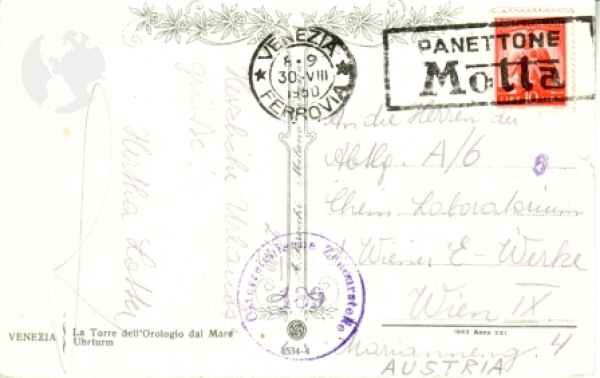 VENEZIA
8-9
30·VIII
1950
FERROVIA
PANETTONE
Motta
LIRE 10
Herzliche Urlaubs
grüße!
Hertha
An die Herren der
Abtlg. A/6
Chem. Laboratorium
d. Wiener E-Werke
Wien IX
Marianneng. 4
AUSTRIA
Österreichische Zensurstelle
189
VENEZIA
La Torre dell'Orologio dal Mare
Uhrturm
4534-4
1943 Anno XXI